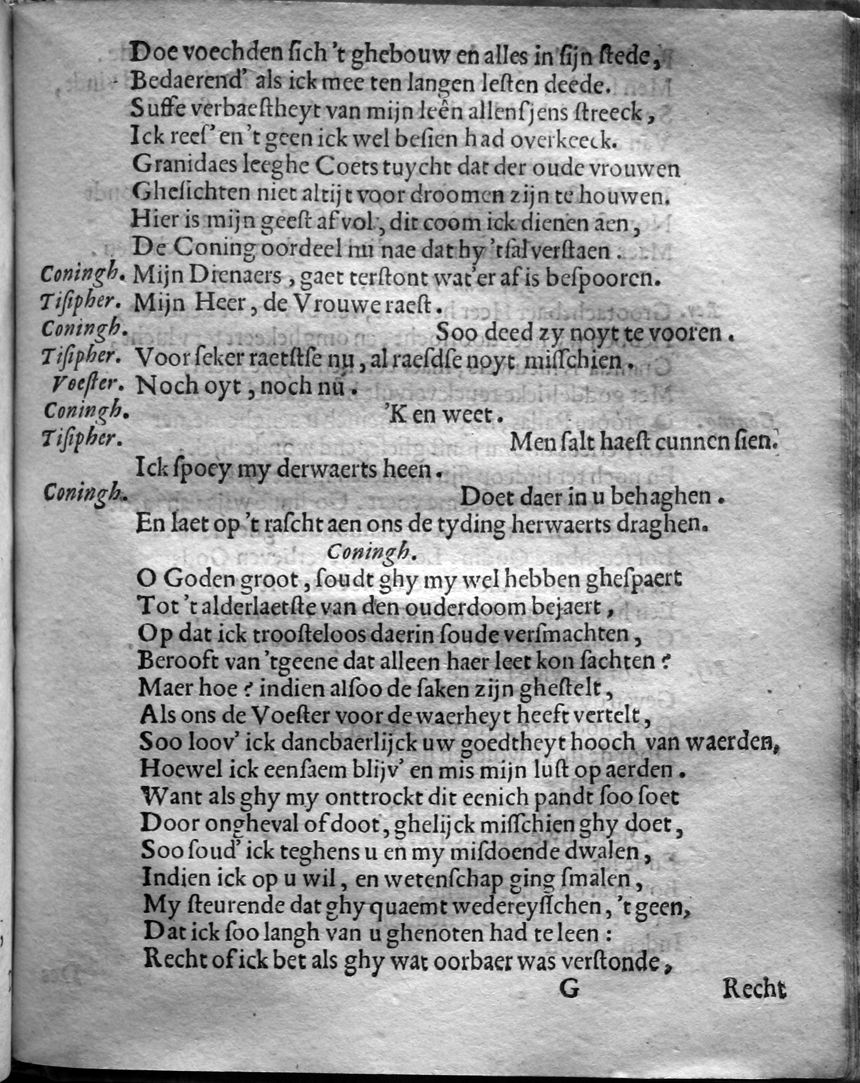 Doe voechden ſich 't ghebouw en alles in ſijn ſtede,
Bedaerend' als ick mee ten langen leſten deede.
Suffe verbaeſtheyt van mijn leên allenſjens ſtreeck,
Ick reeſ' en 't geen ick wel beſien had overkeeck.
Granidaes leeghe Coets tuycht dat der oude vrouwen
Gheſichten niet altijt voor droomen zijn te houwen.
Hier is mijn geeſt af vol, dit coom ick dienen aen,
De Coning oordeel nu nae dat hy 'tſal verſtaen.
Coningh. Mijn Dienaers, gaet terſtont wat'er af is beſpooren.
Tiſipher. Mijn Heer, de Vrouwe raeſt.
Coningh. Soo deed zy noyt te vooren.
Tiſipher. Voor ſeker raetſtſe nu, al raeſdſe noyt miſſchien.
Voeſter. Noch oyt, noch nú.
Coningh. 'K en weet.
Tiſipher. Men ſalt haeſt cunnen ſien.
Ick ſpoey my derwaerts heen.
Coningh. Doet daer in u behaghen.
En laet op 't raſcht aen ons de tyding herwaerts draghen.
Coningh.
O Goden groot, ſoudt ghy my wel hebben gheſpaert
Tot 't alderlaetſte van den ouderdoom bejaert,
Op dat ick trooſteloos daerin ſoude verſmachten,
Berooft van 'tgeene dat alleen haer leet kon ſachten?
Maer hoe? indien alſoo de ſaken zijn gheſtelt,
Als ons de Voeſter voor de waerheyt heeft vertelt,
Soo loov' ick dancbaerlijck uw goedtheyt hooch van waerden,
Hoewel ick eenſaem blijv' en mis mijn luſt op aerden.
Want als ghy my onttrockt dit eenich pandt ſoo ſoet
Door ongheval of doot, ghelijck miſſchien ghy doet,
Soo ſoud' ick teghens u en my miſdoende dwalen,
Indien ick op u wil, en wetenſchap ging ſmalen,
My ſteurende dat ghy quaemt wedereyſſchen, 't geen,
Dat ick ſoo langh van u ghenoten had te leen:
Recht of ick bet als ghy wat oorbaer was verſtonde,
G Recht